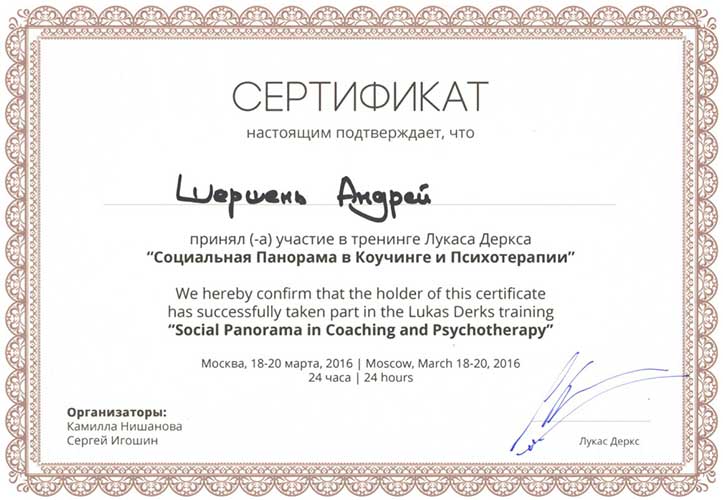 СЕРТИФИКАТ
настоящим подтверждает, что
Шершень Андрей
принял (-а) участие в тренинге Лукаса Деркса
“Социальная Панорама в Коучинге и Психотерапии”
We hereby confirm that the holder of this certificate
has successfully taken part in the Lukas Derks training
“Social Panorama in Coaching and Psychotherapy”
Москва, 18-20 марта, 2016 | Moscow, March 18-20, 2016
24 часа | 24 hours
Организаторы:
Камилла Нишанова
Сергей Игошин
Лукас Деркс